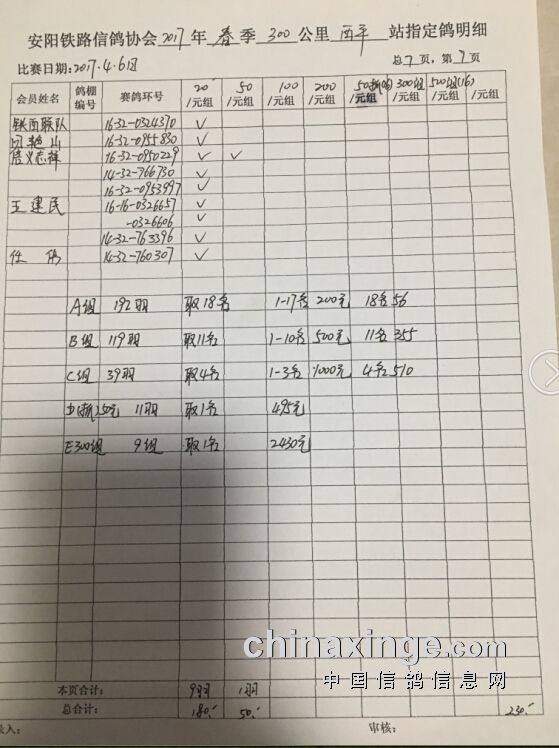 安阳铁路信鸽协会2017年 春 季 300 公里 西平 站指定鸽明细
比赛日期:2017.4.6日 总7页,第7页
会员姓名 鸽棚编号 赛鸽环号 20/元组 50/元组 100/元组 200/元组 50新鸽/元组 300组/元组 500组(16)/元组 /元组
铁西联队 16-32-0324370 ✓
闫艳山 16-32-0955830 ✓
信义志祥 16-32-0950229 ✓ ✓
14-32-766730 ✓
16-32-0953997 ✓
王建民 16-16-0326657 ✓
-0326606 ✓
14-32-763396 ✓
任伟 14-32-760307 ✓
A组 192羽 取18名 1-17名 200元 18名 56
B组 119羽 取11名 1-10名 500元 11名 355
C组 39羽 取4名 1-3名 1000元 4名 510
D(新)50元 11羽 取1名 495元
E300组 9组 取1名 2430元
本页合计: 9羽 1羽
总合计: 180.- 50.- 230.-
录入: 审核:
chinaxinge.com
中国信鸽信息网